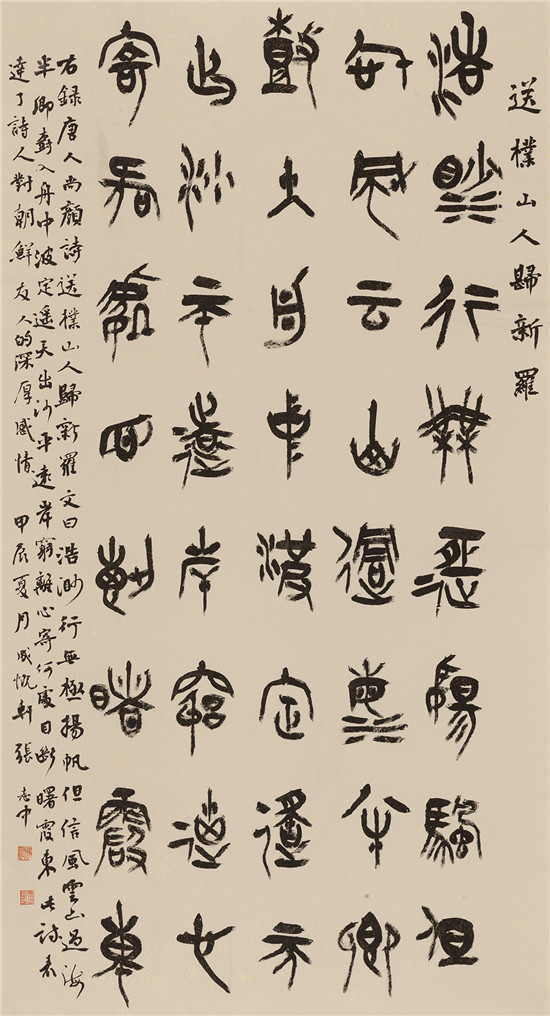 送樸山人歸新羅
浩渺行無極揚颿但
信風云山過海半鄉
樹入舟中波定遙天
出沙平遠岸窮離心
寄何處目斷曙霞東
右錄唐人尚顏詩送樸山人歸新羅文曰浩渺行無極揚帆但信風雲山過海
半鄉樹入舟中波定遙天出沙平遠岸窮離心寄何處目斷曙霞東此詩表
達了詩人對朝鮮友人的深厚感情 甲辰夏月 軒張志中